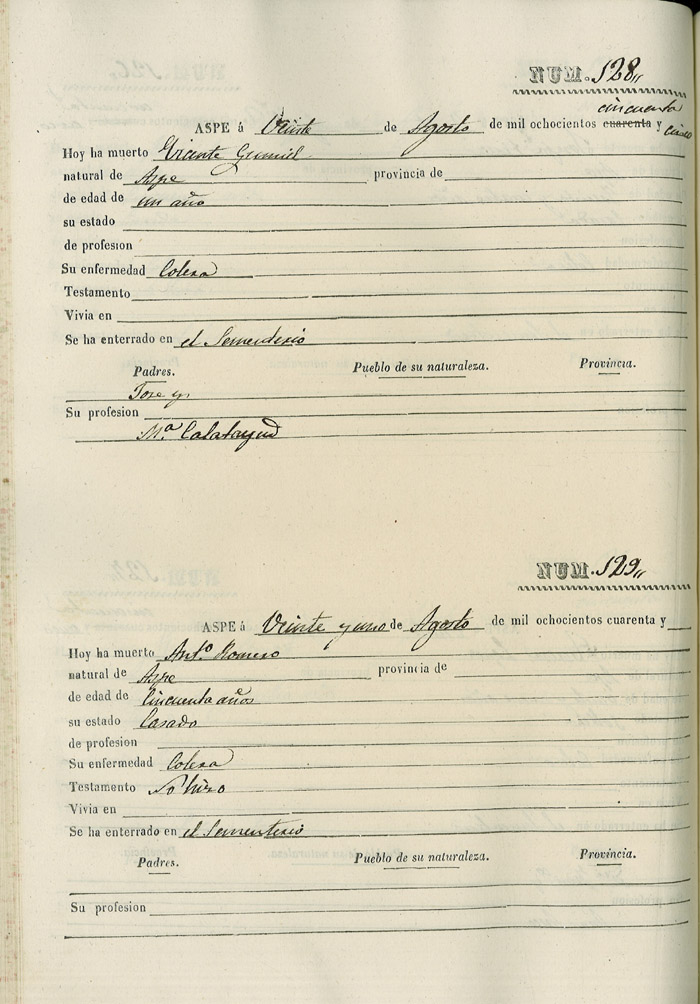 NUM. 128"
cincuenta
ASPE á Veinte de Agosto de mil ochocientos cuarenta y cinco
Hoy ha muerto Vicente Gumiel
natural de Aspe provincia de
de edad de un año
su estado
de profesion
Su enfermedad Colera
Testamento
Vivia en
Se ha enterrado en el Sementerio
Padres. Pueblo de su naturaleza. Provincia.
Jose y
Su profesion
Mª Calatayud
NUM. 129"
ASPE á Veinte y uno de Agosto de mil ochocientos cuarenta y
Hoy ha muerto Antº Romero
natural de Aspe provincia de
de edad de Cincuenta años
su estado Casado
de profesion
Su enfermedad Colera
Testamento No hizo
Vivia en
Se ha enterrado en el Sementerio
Padres. Pueblo de su naturaleza. Provincia.
Su profesion